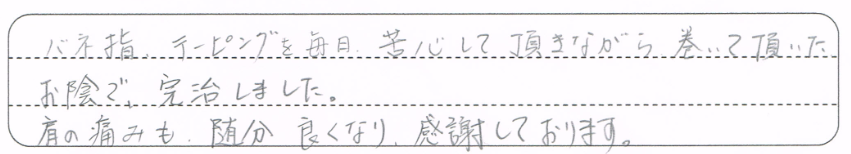 バネ指、テーピングを毎日、苦心して頂きながら、巻いて頂いた
お陰で、完治しました。
肩の痛みも、随分良くなり、感謝しております。